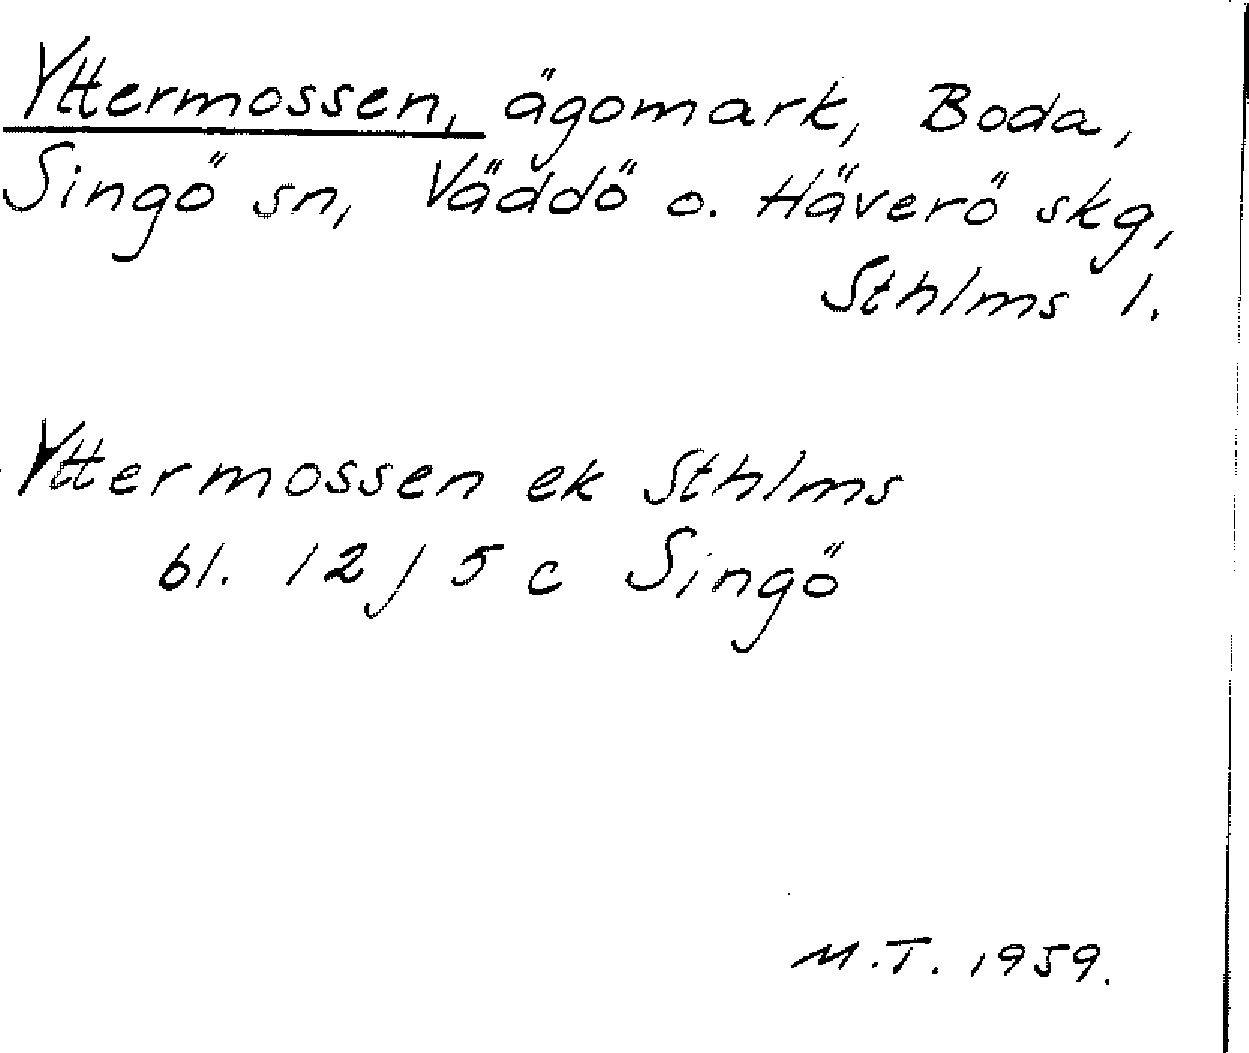 Yttermossen, ägomark, Boda,
Singö sn, Väddö o. Häverö skg,
Sthlms l.
Yttermossen ek Sthlms
bl. 12 J 5 c Singö
M.T. 1959.